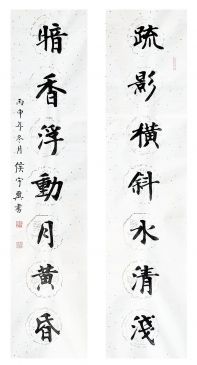 疏影橫斜水清淺
暗香浮動月黃昏
丙申年冬月侯宇興書